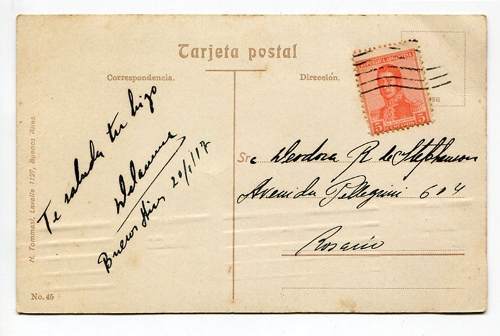 Tarjeta postal
Correspondencia.
Dirección.
5 5
Te saluda tu hijo
Buenos Aires 20/1/17
Sra Teodora R de Stephenson
Avenida Pellegrini 604
Rosario
H. Tommasi, Lavalle 1127, Buenos Aires.
No. 45